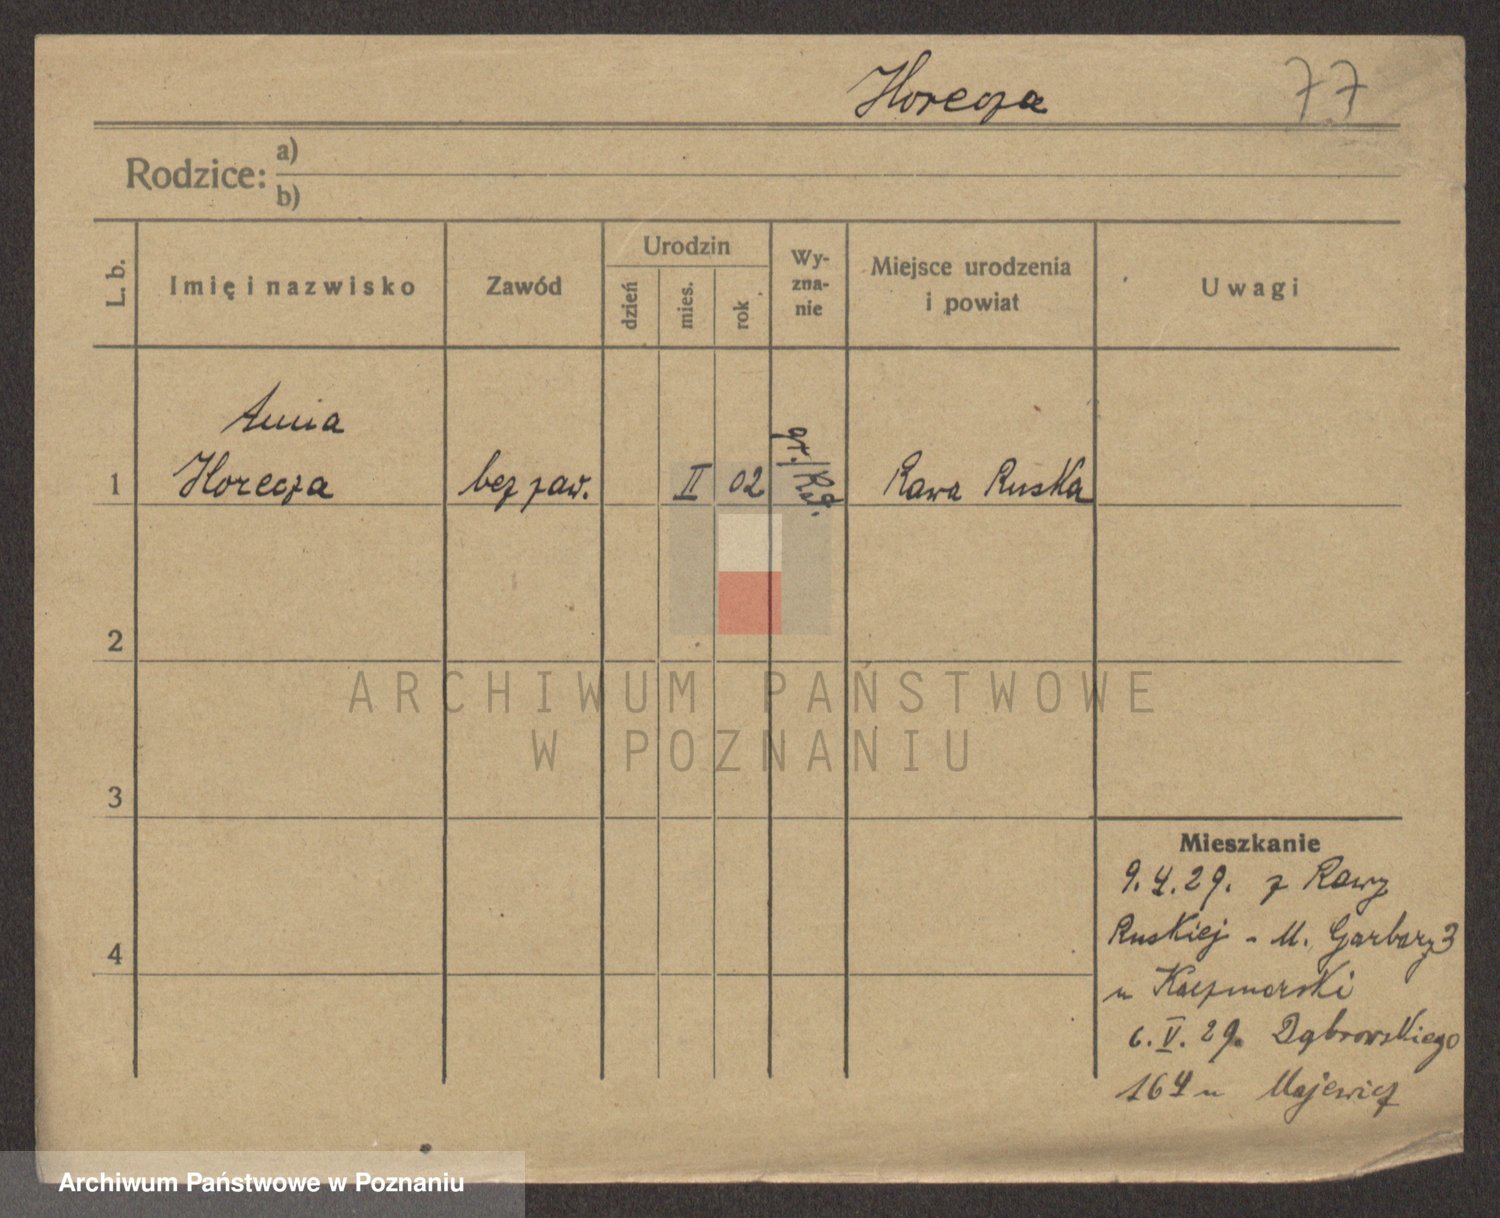 Horecza
77
Rodzice: a)
b)
L. b.
Imię i nazwisko
Zawód
Urodzin
dzień
mies.
rok
Wy-
zna-
nie
Miejsce urodzenia
i powiat
Uwagi
Anna
1 Horecza bez zaw. II 02 gr./Kat. Rawa Ruska
2
ARCHIWUM PAŃSTWOWE
W POZNANIU
3
Mieszkanie
9.4.29. z Rawy
Ruskiej - M. Garbary 3
4
u Kaczmarski
6.V.29. Dąbrowskiego
164 u Majewicz
Archiwum Państwowe w Poznaniu